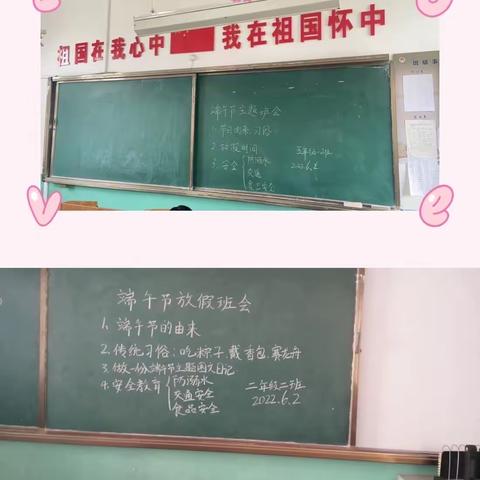 祖国在我心中 我在祖国怀中
端午节主题班会
1. 节日由来、习俗
2. 放假时间
3. 安全 防溺水
交通
食品安全
2022.6.2
V
e
端午节放假班会
1、端午节的由来
2、传统习俗：吃粽子、戴香包、赛龙舟
3、做一份端午节主题图文日记
4、安全教育 防溺水
交通安全
食品安全
二年级二班
2022.6.2